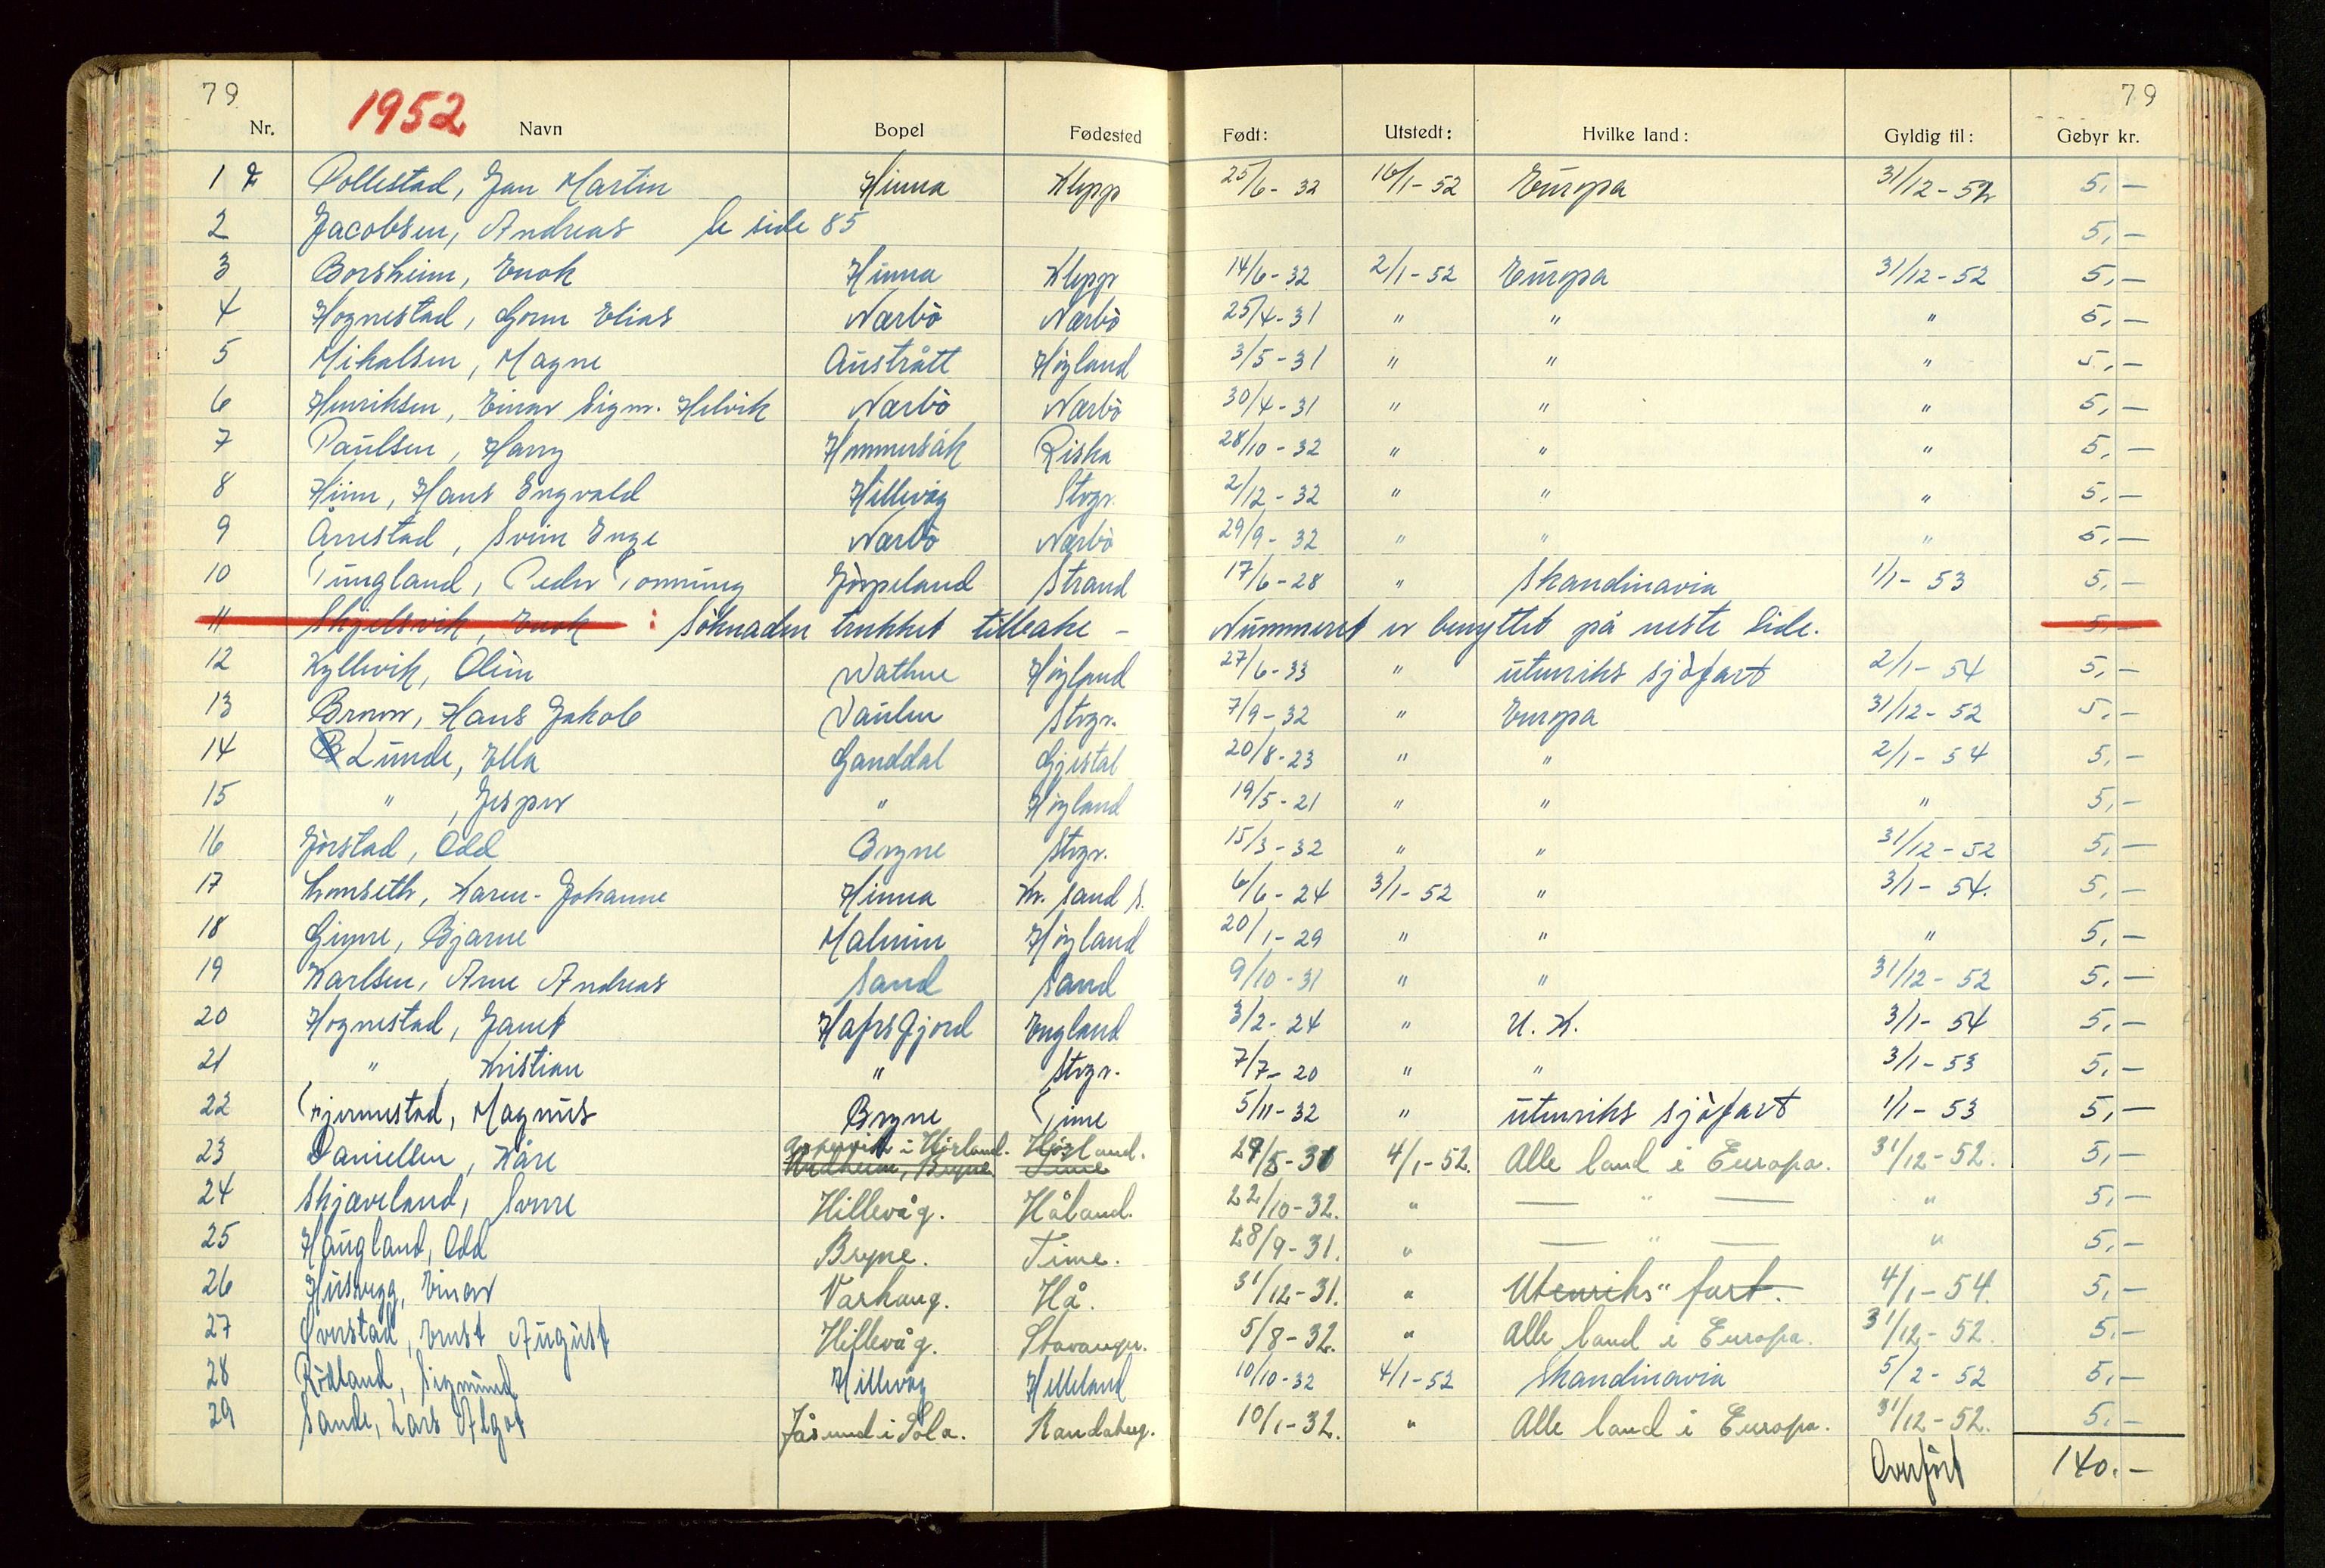 79 1952 79
Nr. Navn Bopel Fødested Født: Utstedt: Hvilke land: Gyldig til: Gebyr kr.
1 Pollestad, Jan Martin Hinna Klepp 25/6-32 16/1-52 Europa 31/12-52 5,-
2 Jacobsen, Andreas Se side 85 5,-
3 Borsheim, Enok Hinna Klepp 14/6-32 2/1-52 Europa 31/12-52 5,-
4 Hognestad, Gorm Elias Nærbö Nærbö 25/4-31 " " " 5,-
5 Mikalsen, Magne Austrått Höyland 3/5-31 " " " 5,-
6 Henriksen, Einar Sigm. Helvik Nærbö Nærbö 30/4-31 " " " 5,-
7 Paulsen, Harry Hommersåk Riska 28/10-32 " " " 5,-
8 Hiim, Hans Ingvald Hillevåg Stvgr. 2/12-32 " " " 5,-
9 Årrestad, Svein Inge Nærbö Nærbö 29/9-32 " " " 5,-
10 Tungland, Peder Tonning Jörpeland Strand 17/6-28 " Skandinavia 1/1-53 5,-
11 Skjelsvik, Enok : Söknaden trukket tilbake - Nummeret er benyttet på neste side. 5,-
12 Kyllevik, Olein Wathne Höyland 27/6-33 " utenriks sjöfart 2/1-54 5,-
13 Brown, Hans Jakob Vaulen Stvgr. 7/9-32 " Europa 31/12-52 5,-
14 Lunde, Ella Ganddal Gjestal 20/8-23 " " 2/1-54 5,-
15 " , Jesper " Höyland 19/5-21 " " " 5,-
16 Jörstad, Odd Bryne Stvgr. 15/3-32 " " 31/12-52 5,-
17 Lomseth, Karen-Johanne Hinna Kr.sand S. 6/6-24 3/1-52 " 3/1-54. 5,-
18 Gimre, Bjarne Malmin Höyland 20/1-29 " " " 5,-
19 Karlsen, Arne Andreas Sand Sand 9/10-31 " " 31/12-52 5,-
20 Hognestad, Janet Hafrsfjord England 3/2-24 " U.K. 3/1-54 5,-
21 " , Kristian " Stvgr. 7/7-20 " " 3/1-53 5,-
22 Tjermestad, Magnus Bryne Time 5/11-32 " utenriks sjöfart 1/1-53 5,-
i Høyland. Høyland.
23 Danielsen, Kåre Bryne Time 29/5-31 4/1-52. Alle land i Europa. 31/12-52. 5,-
24 Skjæveland, Sverre Hillevåg. Håland. 22/10-32. " — " — " 5,-
25 Haugland, Odd Bryne. Time. 28/9-31. " — " — " 5,-
26 Husvegg, Einar Varhaug. Hå. 31/12-31. " Utenriks" fart. 4/1-54. 5,-
27 Överstad, Ernst August Hillevåg. Stavanger. 5/8-32. " Alle land i Europa. 31/12-52. 5,-
28 Rödland, Sigmund Hillevåg Helleland 10/10-32 4/1-52 Skandinavia 5/2-52 5,-
29 Sande, Lars Algot Jåsund i Sola. Randaberg. 10/1-32. " Alle land i Europa. 31/12-52. 5,-
Overfört 140.-